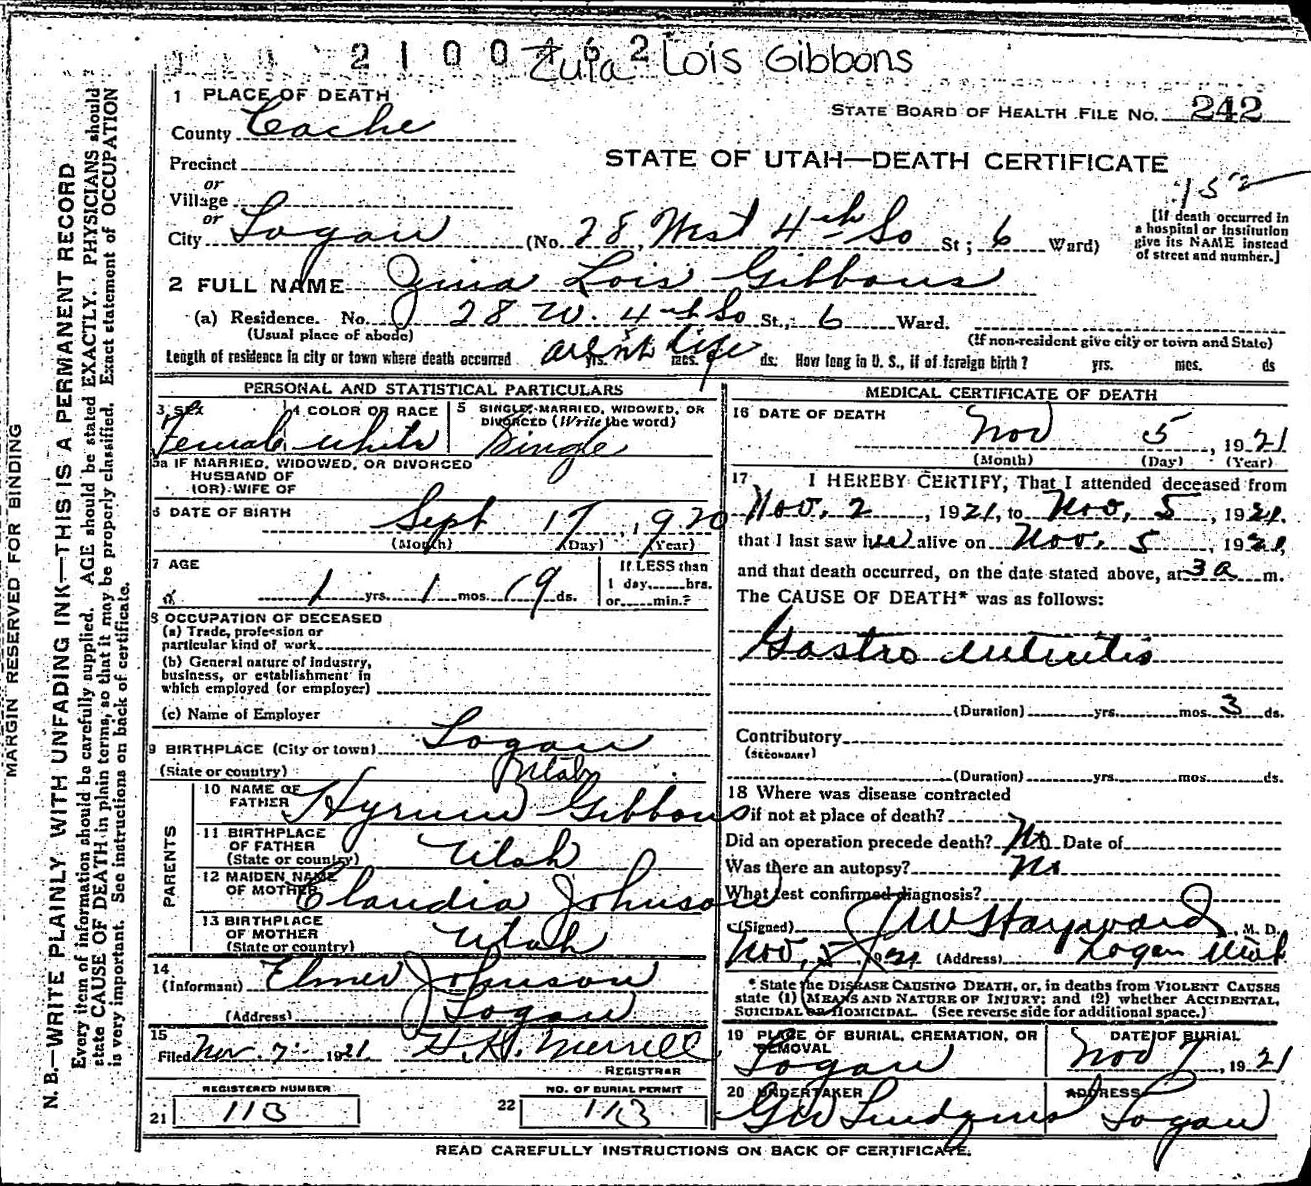 2100462
Lois Gibbons
1 PLACE OF DEATH
STATE BOARD OF HEALTH FILE No. 242
County Cache
STATE OF UTAH—DEATH CERTIFICATE
Precinct
or
Village
or
City Logan (No. 28, West 4th So St; 6 Ward)
[If death occurred in a hospital or institution give its NAME instead of street and number.]
2 FULL NAME Lois Gibbons
(a) Residence. No. 28 W. 4th So St., 6 Ward.
(Usual place of abode)
(If non-resident give city or town and State)
Length of residence in city or town where death occurred life yrs. mos. ds. How long in U. S., if of foreign birth? yrs. mos. ds
PERSONAL AND STATISTICAL PARTICULARS
3 SEX
Female
4 COLOR OR RACE
White
5 SINGLE, MARRIED, WIDOWED, OR DIVORCED (Write the word)
Single
5a IF MARRIED, WIDOWED, OR DIVORCED
HUSBAND OF
(OR) WIFE OF
6 DATE OF BIRTH
Sept 17, 1920
(Month) (Day) (Year)
7 AGE
1 yrs. 1 mos. 19 ds.
If LESS than
1 day......hrs.
or......min.?
8 OCCUPATION OF DECEASED
(a) Trade, profession or
particular kind of work
(b) General nature of industry,
business, or establishment in
which employed (or employer)
(c) Name of Employer
9 BIRTHPLACE (City or town) Logan
(State or country) Utah
PARENTS
10 NAME OF FATHER Hyrum Gibbons
11 BIRTHPLACE
OF FATHER
(State or country) Utah
12 MAIDEN NAME
OF MOTHER Claudia Johnson
13 BIRTHPLACE
OF MOTHER
(State or country) Utah
14
(Informant) Elmer Johnson
(Address) Logan
15
Filed Nov. 7. 1921 H. H. Merrill
REGISTRAR
REGISTERED NUMBER
21 113
NO. OF BURIAL PERMIT
22 113
MEDICAL CERTIFICATE OF DEATH
16 DATE OF DEATH
Nov 5, 1921
(Month) (Day) (Year)
17 I HEREBY CERTIFY, That I attended deceased from
Nov. 2, 1921, to Nov. 5, 1921.
that I last saw her alive on Nov. 5, 1921,
and that death occurred, on the date stated above, at 3 a m.
The CAUSE OF DEATH* was as follows:
Gastro enteritis
(Duration) yrs. mos. 3 ds.
Contributory
(SECONDARY)
(Duration) yrs. mos. ds.
18 Where was disease contracted
if not at place of death?
Did an operation precede death? No Date of
Was there an autopsy? No
What test confirmed diagnosis?
(Signed) J W Hayward, M. D.
Nov. 5 1921 (Address) Logan Utah
* State the DISEASE CAUSING DEATH, or, in deaths from VIOLENT CAUSES
state (1) MEANS AND NATURE OF INJURY; and (2) whether ACCIDENTAL,
SUICIDAL OR HOMICIDAL. (See reverse side for additional space.)
19 PLACE OF BURIAL, CREMATION, OR REMOVAL
Logan
DATE OF BURIAL
Nov 7, 1921
20 UNDERTAKER
ADDRESS
Logan
READ CAREFULLY INSTRUCTIONS ON BACK OF CERTIFICATE.
MARGIN RESERVED FOR BINDING
N. B.—WRITE PLAINLY WITH UNFADING INK—THIS IS A PERMANENT RECORD
Every item of information should be carefully supplied. AGE should be stated EXACTLY. PHYSICIANS should
state CAUSE OF DEATH in plain terms, so that it may be properly classified. Exact statement of OCCUPATION
is very important. See instructions on back of certificate.